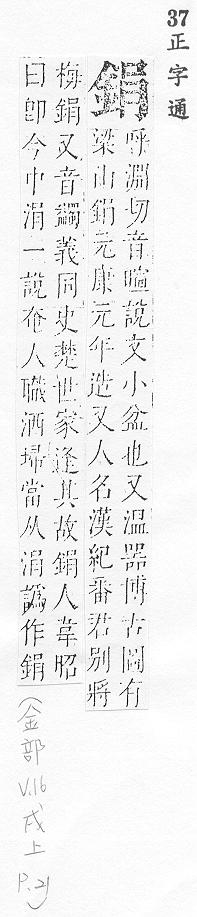 37 正字通
鋗
呼淵切音暄說文小盆也又溫器博古圖有
梁山鋗元康元年造又人名漢紀番君別將
梅鋗又音蠲義同史楚世家逢其故鋗人韋昭
曰卽今中涓一說奄人職洒埽當从涓譌作鋗
(金部
V.16
戌上
P.21